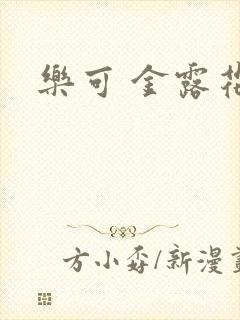 樂可 金露花
方小孬/新漫畫